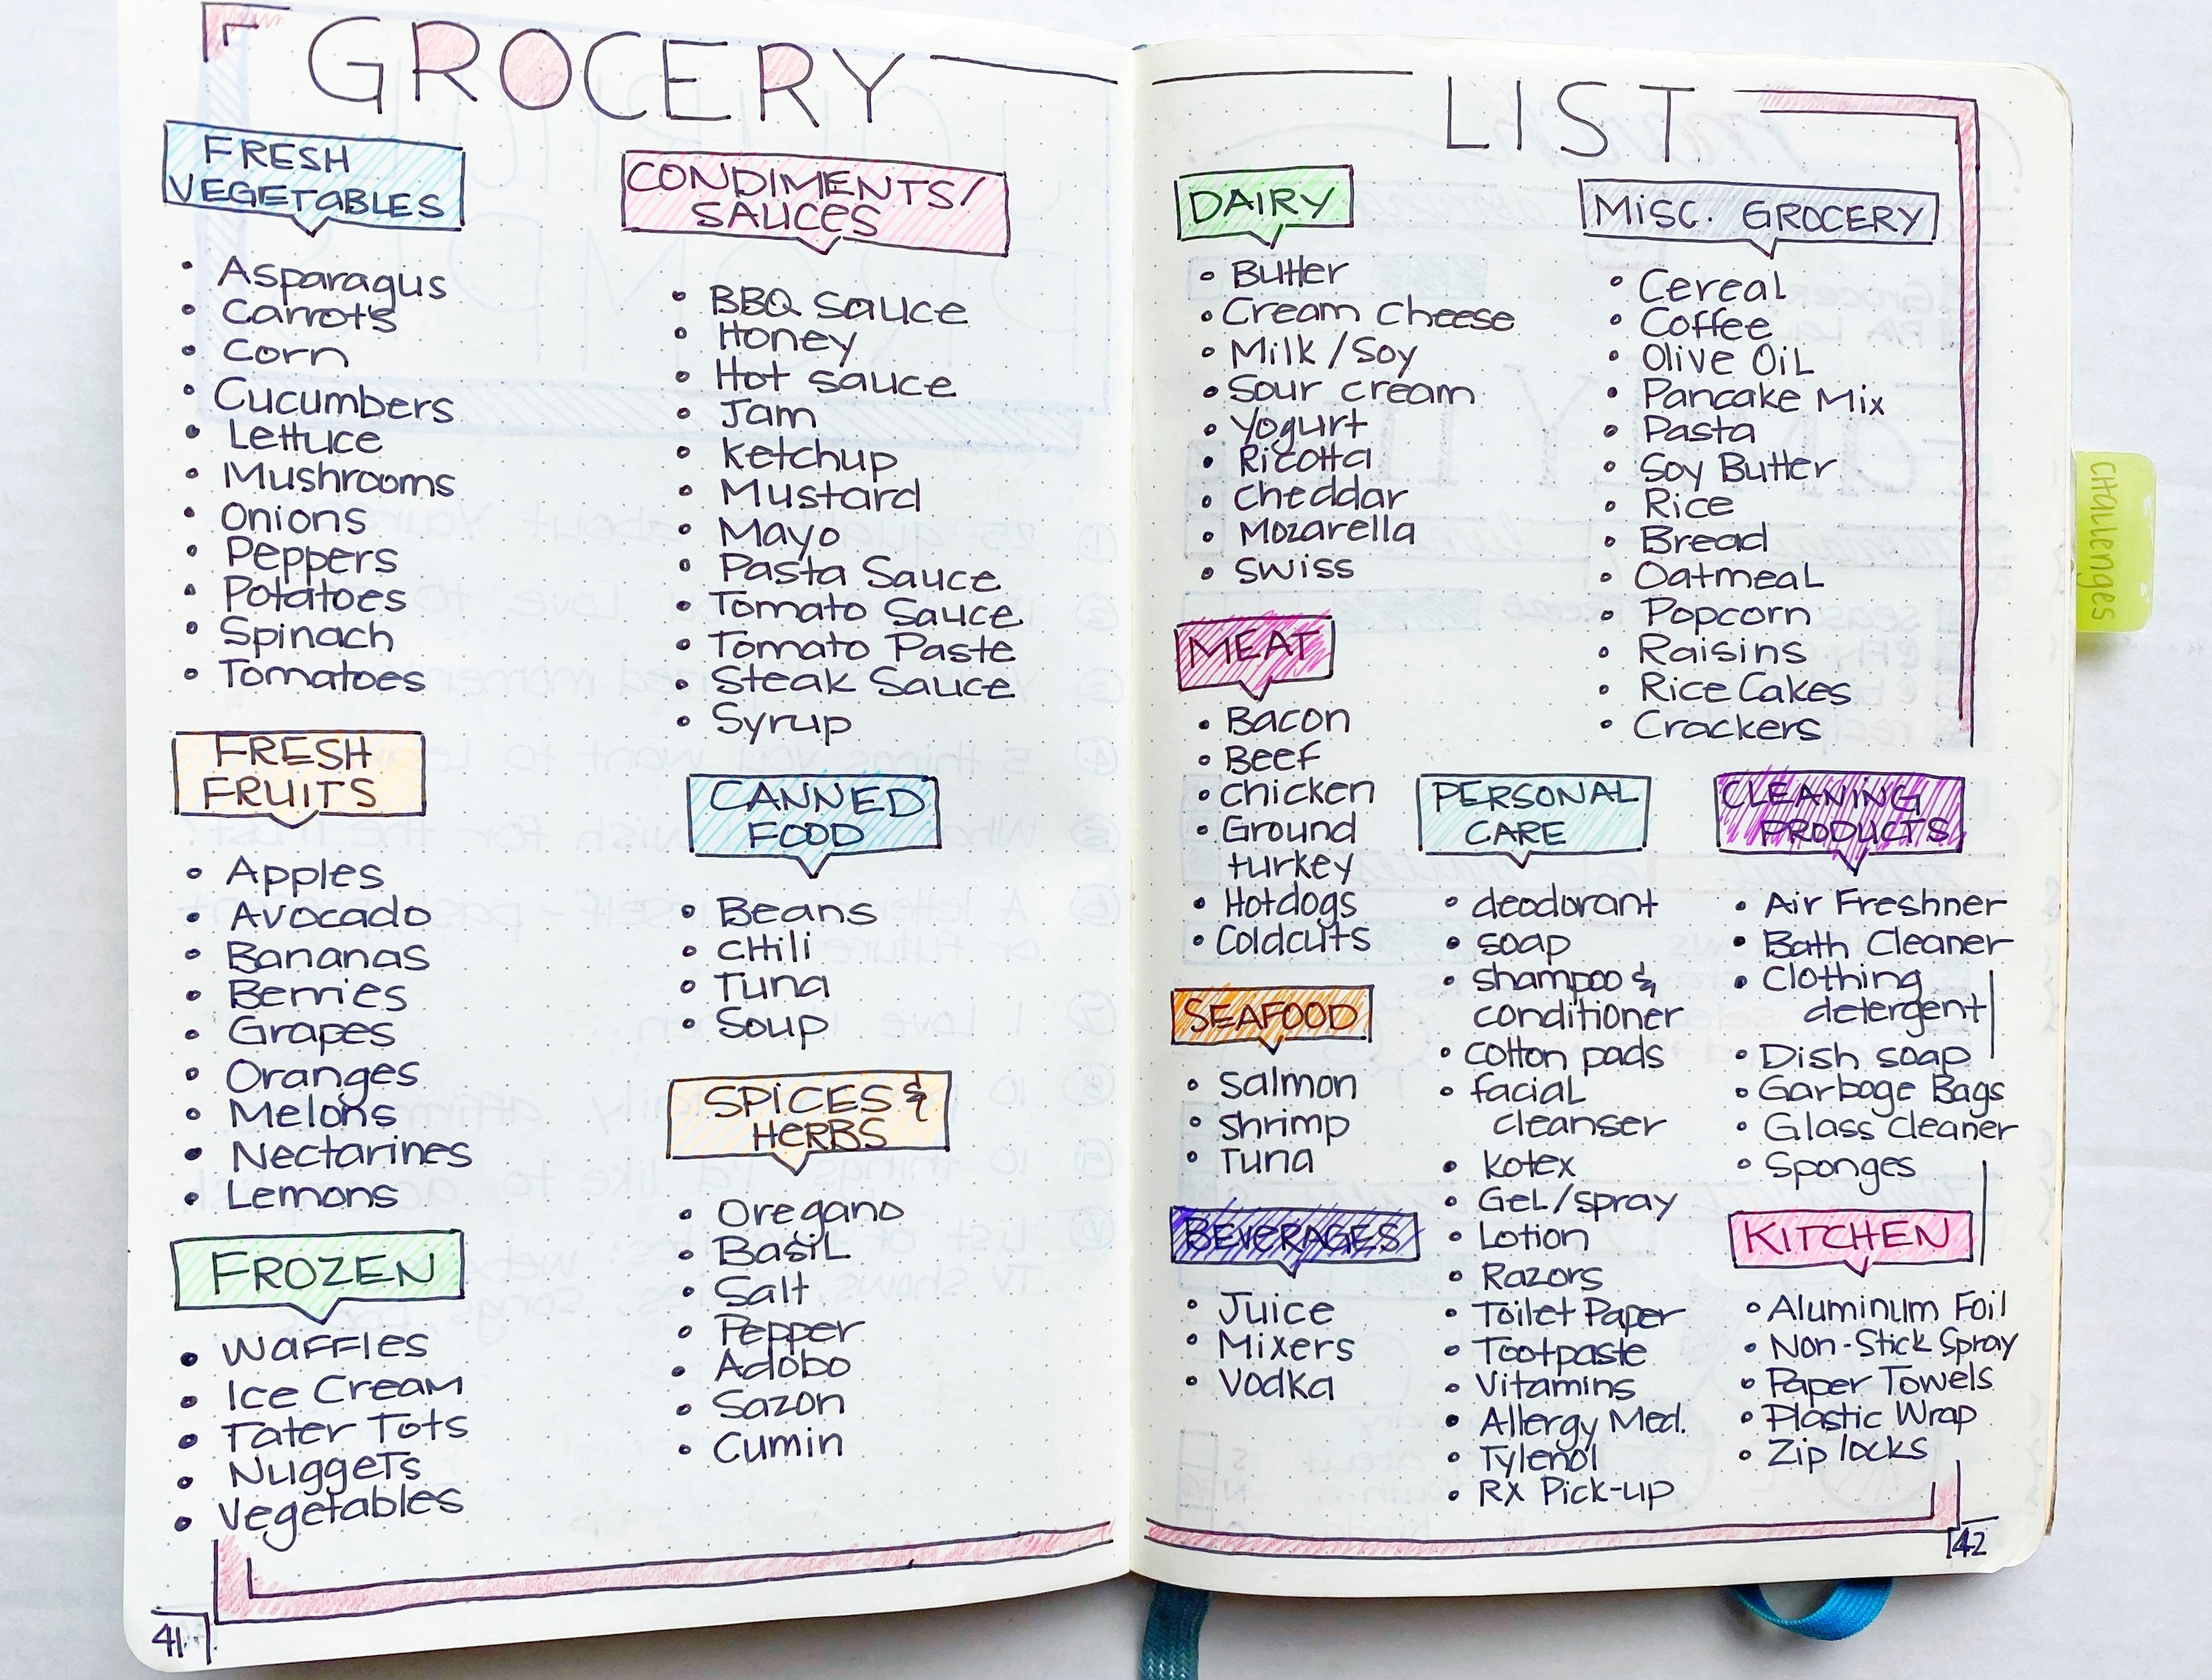 GROCERY
FRESH
VEGETABLES
Asparagus
Carrots
Corn
Cucumbers
Lettuce
Mushrooms
Onions
Peppers
Potatoes
Spinach
Tomatoes
FRESH
FRUITS
Apples
Avocado
Bananas
Berries
Grapes
Oranges
Melons
Nectarines
Lemons
FROZEN
Waffles
Ice Cream
Tater Tots
Nuggets
Vegetables
41
CONDIMENTS/
SAUCES
BBQ Sauce
Honey
Hot sauce
Jam
Ketchup
Mustard
Mayo
Pasta Sauce
Tomato Sauce
Tomato Paste
Steak Sauce
Syrup
CANNED
FOOD
Beans
Chili
Tuna
Soup
SPICES &
HERBS
Oregano
Basil
Salt
Pepper
Adobo
Sazon
Cumin
LIST
DAIRY
Butter
Cream Cheese
Milk/Soy
Sour cream
Yogurt
Ricotta
Cheddar
Mozarella
Swiss
MEAT
Bacon
Beef
Chicken
Ground
turkey
Hotdogs
Coldcuts
SEAFOOD
Salmon
Shrimp
Tuna
BEVERAGES
Juice
Mixers
Vodka
MISC. GROCERY
Cereal
Coffee
Olive Oil
Pancake Mix
Pasta
Soy Butter
Rice
Bread
Oatmeal
Popcorn
Raisins
Rice Cakes
Crackers
PERSONAL
CARE
deodorant
soap
shampoo &
conditioner
cotton pads
facial
cleanser
Kotex
Gel/spray
Lotion
Razors
Toilet Paper
Tootpaste
Vitamins
Allergy Med.
Tylenol
RX Pick-up
CLEANING
PRODUCTS
Air Freshner
Bath Cleaner
Clothing
detergent
Dish soap
Garbage Bags
Glass cleaner
Sponges
KITCHEN
Aluminum Foil
Non-Stick Spray
Paper Towels
Plastic Wrap
Zip locks
42
Challenges